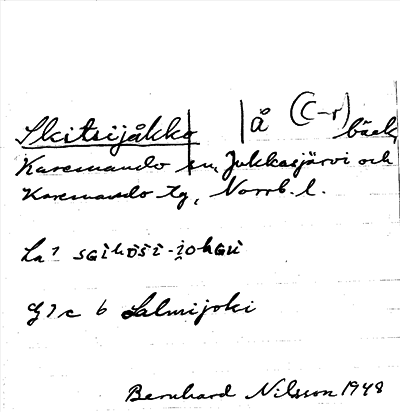 Skitsijåkko | å (C-r) bäck
Karesuando sn, Jukkasjärvi och
Karesuando tg, Norrb. l.
La?
G?c b Salmijoki
Bernhard Nilsson 1948